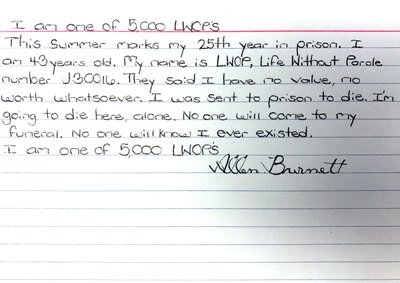 I am one of 5,000 LWOP's
This Summer marks my 25th year in prison. I
am 43 years old. My name is LWOP, Life Without Parole
number J30016. They said I have no value, no
worth whatsoever. I was sent to prison to die. I'm
going to die here, alone. No one will come to my
funeral. No one will know I ever existed.
I am one of 5,000 LWOP's
Allen Burnett